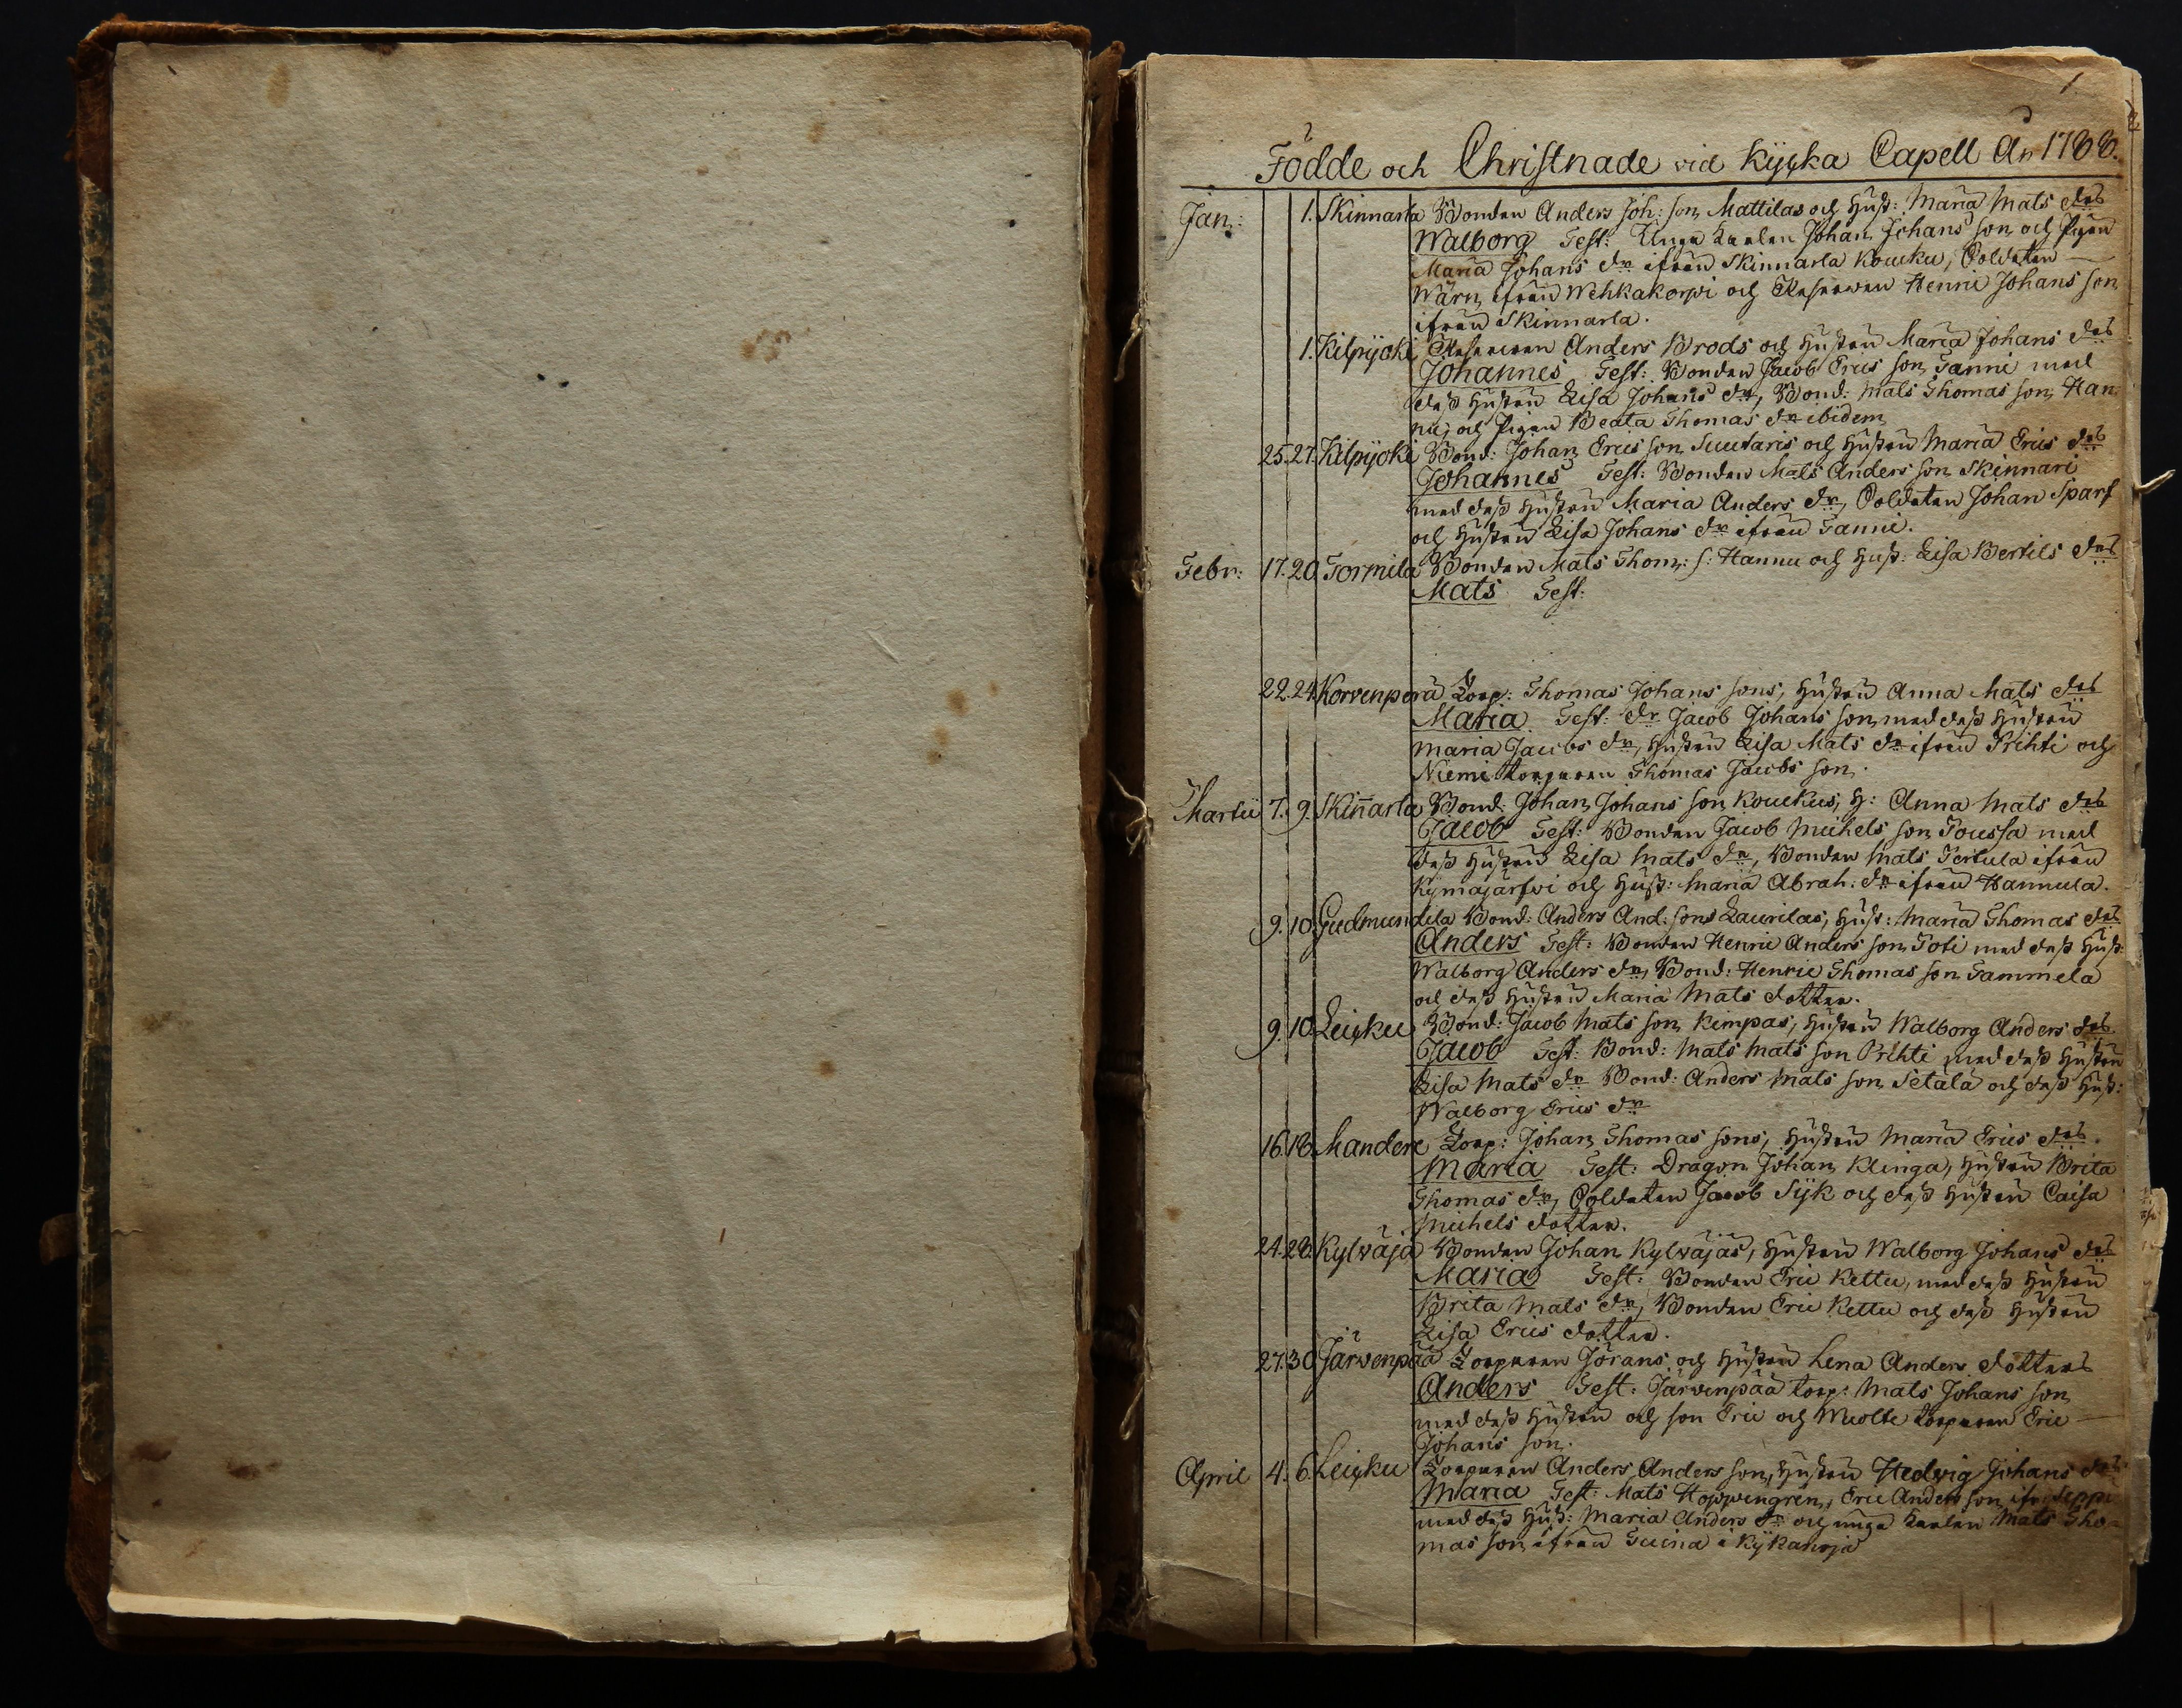 1.
Födde och Christnade vid Kyrka Capell År 1788.
Jan: 1. Skinnarla Bonden Anders Joh: son Mattilas och Hust: Maria Mats drs
Walborg Test: Unga Karlen Johan Johans son och Pigan
Maria Johans dr ifrån Skinnarla Koucku, Soldaten
Wärn ifrån Wehkakorpi och Reserven Henric Johans son
ifrån Skinnarla.
1. Kilpijoki Reserven Anders Brods och Hustrun Maria Johans drs
Johannes Test: Bonden Jacob Erics son Tanni med
dess Hustru Lisa Johans dr, Bond: Mats Thomas son Han
nu, och Pigan Beata Thomas dr ibidem
25. 27. Kilpijoki Bond: Johan Erics son Suutaris och Hustrun Maria Erics drs
Johannes Test: Bonden Mats Anders son Skinnari
med dess Hustru Maria Anders dr, Soldaten Johan Sparf
och Hustrun Lisa Johans dr ifrån Tanni.
Febr: 17. 20. Tormila Bonden Mats Thom: s: Hannu och Hust: Lisa Bertils drs
Mats Test:
22. 24. Korvenperä Torp: Thomas Johans sons, Hustrun Anna Mats drs
Maria Test: dr Jacob Johans son med dess Hustru
Maria Jacobs dr, Hustrun Lisa Mats dr ifrån Prihti och
Niemi torparen Thomas Jacobs son.
Martii 7. 9. Skiñarla Bond: Johan Johans son Kouckus, H: Anna Mats drs
Jacob Test: Bonden Jacob Michels son Toussa med
dess Hustru Lisa Mats dr, Bonden Mats Pertula ifrån
Kymäjärfwi och Hust: Maria Abrah: dr ifrån Hannula.
9. 10. Gudmundila Bond: Anders And: sons Laurilas, Hust: Maria Thomas drs
Anders Test: Bonden Henric Anders son Toti med dess Hust:
Walborg Anders dr, Bond: Henric Thomas son Tammela
och dess Hustru Maria Mats dotter.
9. 10. Leisku Bond: Jacob Mats son Kimpas, Hustrun Walborg Anders drs
Jacob Test: Bond: Mats Mats son Prihti med dess Hustru
Lisa Mats dr Bond: Anders Mats son Setälä och dess Hust:
Walborg Erics dr
16. 18. Mandere Torp: Johan Thomas sons, Hustrun Maria Erics drs.
Maria Test: Dragon Johan Klinga, Hustrun Brita
Thomas dr, Soldaten Jacob Sijk och dess Hustru Caisa
Michels dotter.
24. 28. Kylväjä Bonden Johan Kylväjäs, Hustrun Walborg Johans drs
Maria Test: Bonden Eric Kettu, med dess Hustru
Brita Mats dr, Bonden Eric Kettu och dess Hustru
Lisa Erics dotter.
27. 30. Järvenpää Torparen Jörans och Hustrun Lena Anders dotters
Anders Test: Järvenpää torp: Mats Johans son
med dess Hustru och son Eric och torparen Eric
Johans son.
April 4. 6. Leisku Torparen Anders Anders son, Hustrun Hedvig Johans drs
Maria Test: Mats Hoppengrén, Eric Anders son ifr: Seppi
med dess Hust: Maria Anders dr och unga Karlen Mats Tho=
mas son ifrån Tuina i